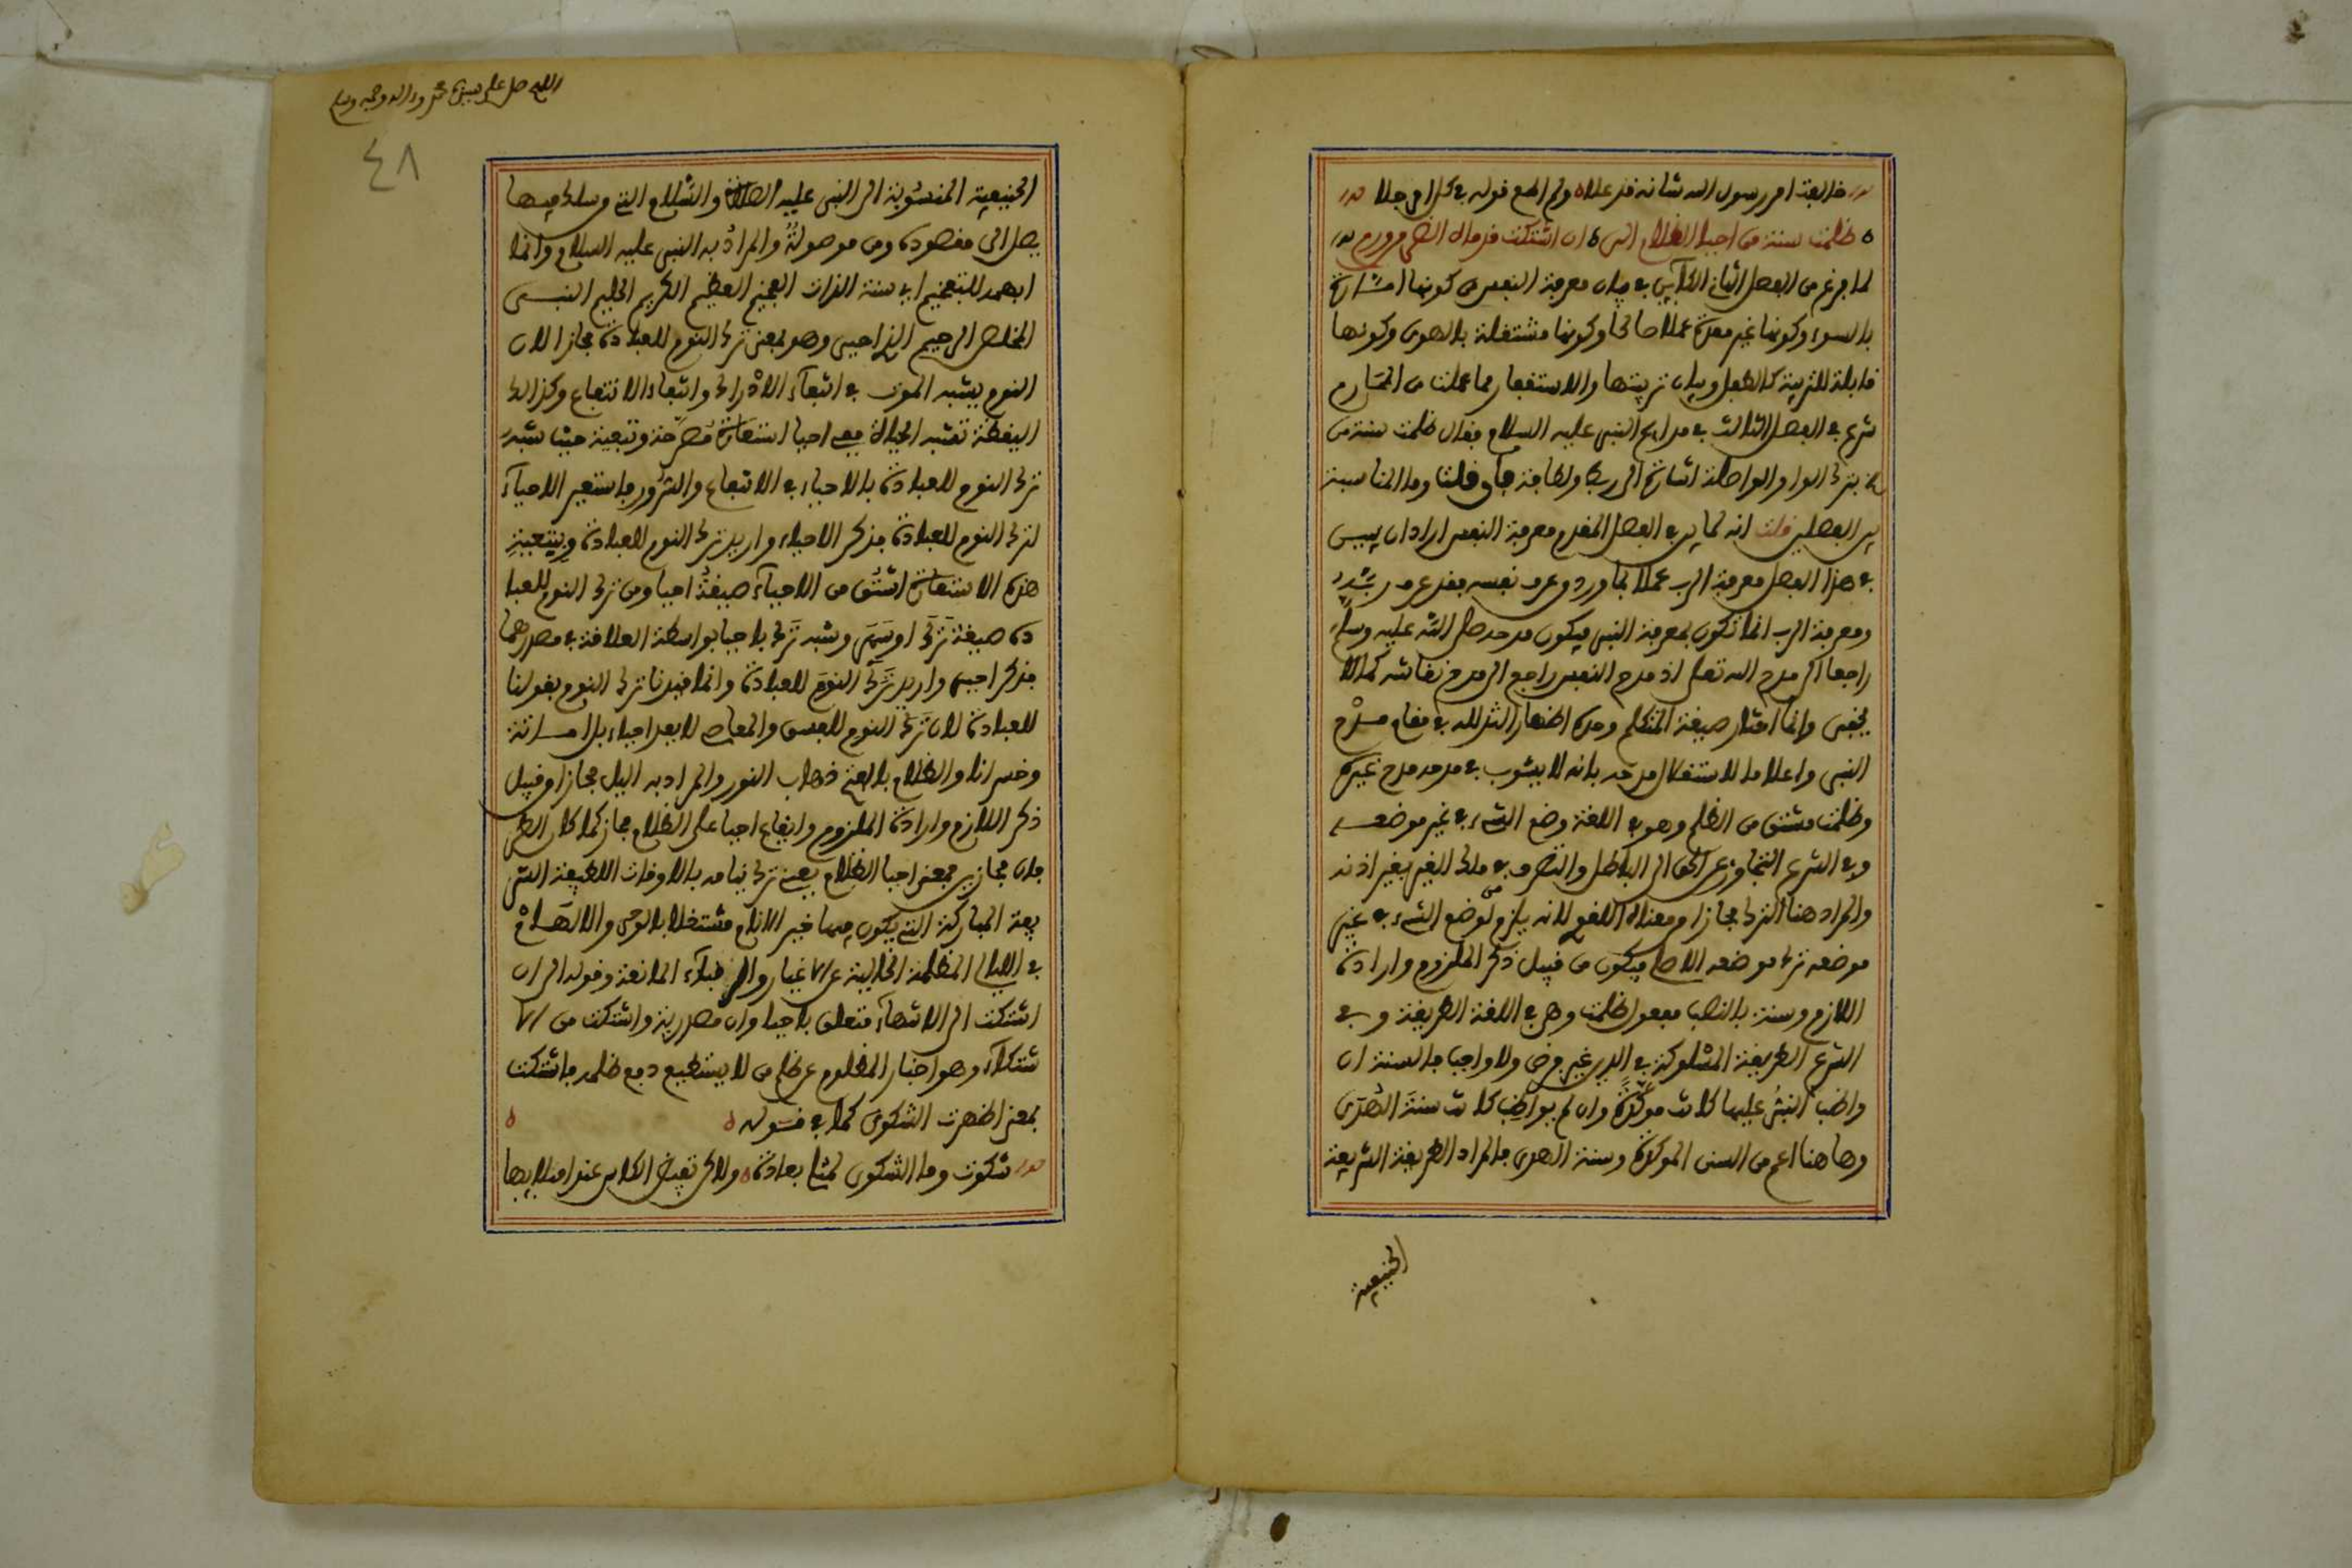 خالفت امر رسول الله شانه قد علا ولم اطع قوله في كل امر جلا
ظلمت سنة من احيا الظلام الى ان اشتكت قدماه الضر من ورم
لما فرغ من الفصل الثاني الكائن في بيان معرفة النفس من كونها امارة
بالسوء وكونها غير معدة عملا صالحا وكونها مشتغلة بالهوى وكونها
قابلة للتربية كالطفل وبيان تربيتها والاستغفار مما عملت من المحارم
شرع في الفصل الثالث في مدايح النبي عليه السلام فقال ظلمت سنة من
بترك الواو الواصلة اشارة الى ربط ولطافة فان قلت وما المناسبة
بين الفصلين قلت انه لما بين في الفصل المقدم معرفة النفس اراد ان يبين
في هذا الفصل معرفة الرب عملا بما ورد من عرف نفسه فقد عرف ربه
ومعرفة الرب انما تكون بمعرفة النبي فيكون مدحه صلى الله عليه وسلم
راجعا الى مدح الله تعلى اذ مدح النفس راجع الى مدح نقاشه كما لا
يخفى وانما اختار صيغة المتكلم وحده اظهارا لتذلله في مقام مدح
النبي واعلاما لاستقلال مدحه بانه لا يشوب في مدحه مدح غيره
وظلمت مشتق من الظلم وهو في اللغة وضع الشيء في غير موضعه
وفي الشرع التجاوز عن الحق الى الباطل والتصرف في ملك الغير بغير اذنه
والمراد هنا الترك مجازا ومعناه اللغوي لانه يلزم من وضع الشيء في غير
موضعه ترك موضعه الاصلي فيكون من قبيل ذكر الملزوم وارادة
اللازم وسنة بالنصب مفعول ظلمت وهي في اللغة الطريقة وفي
الشرع الطريقة المسلوكة في الدين غير فرض ولا واجب فالسنة ان
واظب النبي عليها كانت موكدة وان لم يواظب كانت سنة الهدى
وهاهنا اعم من السنن الموكدة وسنة الهدى فالمراد الطريقة الشريفة
الحنيفية
اللهم صل على سيدنا محمد وءاله وصحبه وسلم
٤٨
الحنيفية المنسوبة الى النبي عليه الصلاة والسلام التي من سلك فيها
يصل الى مقصوده ومن موصولة والمراد به النبي عليه السلام وانما
ابهمه للتفخيم اي سنة الذات الفخيم العظيم الكريم الحليم النبي
المخلص الرحيم الذي احيى وهو بمعنى ترك النوم للعبادة مجازا لان
النوم يشبه الموت في انتفاء الادراك وانتفاء الانتفاع وكذالك
اليقظة تشبه الحياة ففي احيا استعارة مصرحة وتبعية حيث شبه
ترك النوم للعبادة بالاحياء في الانتفاع والترور فاستعير الاحياء
لترك النوم للعبادة فذكر الاحياء واريد ترك النوم للعبادة وبتبعية
هذه الاستعارة اشتق من الاحياء صيغة احيا ومن ترك النوم للعبا
دة صيغة ترك او سمى وشبه ترك باحيا بواسطة العلاقة في مصدرهما
فذكر احيى واريد ترك النوم للعبادة وانما قيدنا ترك النوم بقولنا
للعبادة لان ترك النوم للفسق والمعاصي لا يعد احياء بل اماتة
وخسرانا والظلام بالفتح ذهاب النور والمراد به اليل مجازا من قبيل
ذكر اللازم وارادة الملزوم وايقاع احيا على الظلام مجاز كما كان الظلم
فان مجازين فمعنى احيا الظلام يعني ترك نيامه بالاوقات اللطيفة الشر
يفة المباركة التي يكون فيها خير الانام مشتغلا بالوحي والالهام
في الليالي المظلمة الخالية عن الاغيار والرقباء المانعة وقوله الى ان
اشتكت الى الانتهاء متعلق باحيا وان مصدرية واشتكت من الا
شتكاء وهو اخبار المظلوم عن ظلم من لا يستطيع دفع ظلمه فاشتكت
بمعنى اظهرت الشكوى كما في قوله
شكوت وما الشكوى لمثلي بعادة ولاكن تفيض الكاس عند امتلايها